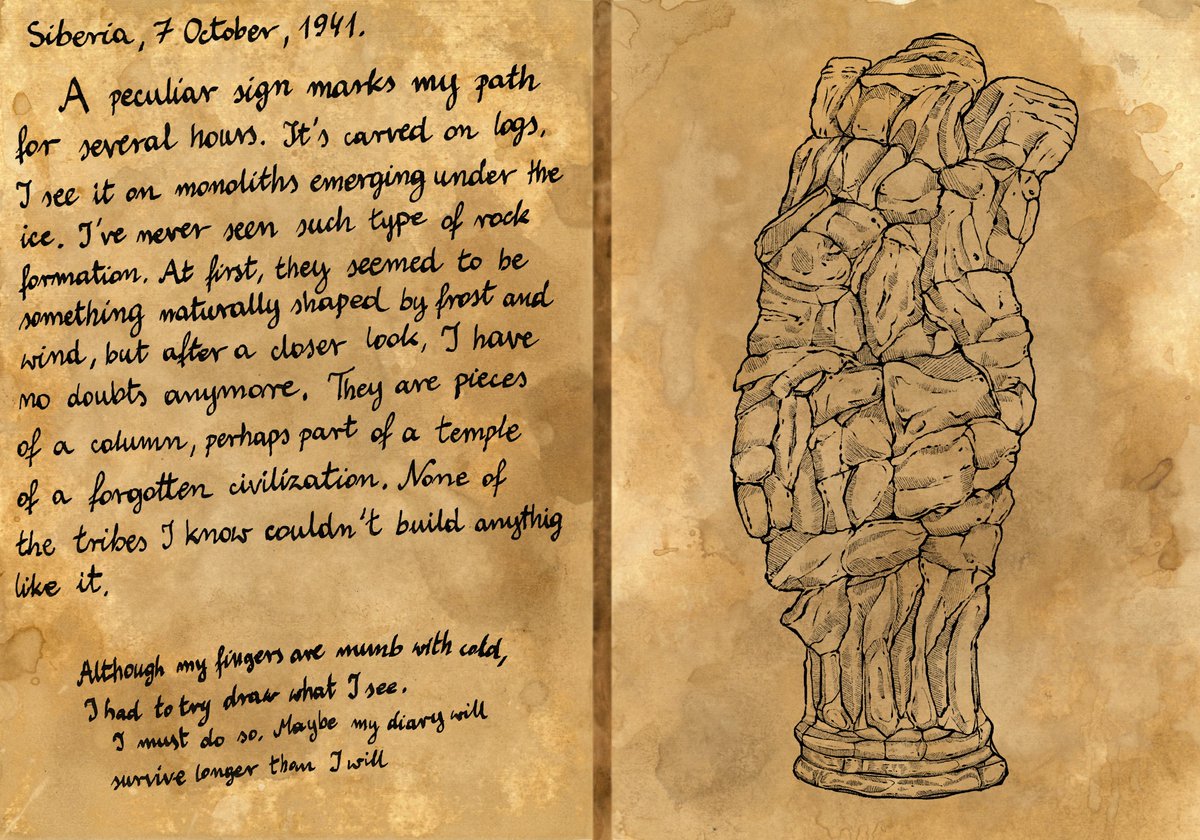 Siberia, 7 October, 1941.
A peculiar sign marks my path
for several hours. It's carved on logs,
I see it on monoliths emerging under the
ice. I've never seen such type of rock
formation. At first, they seemed to be
something naturally shaped by frost and
wind, but after a closer look, I have
no doubts anymore. They are pieces
of a column, perhaps part of a temple
of a forgotten civilization. None of
the tribes I know couldn't build anythig
like it.
Although my fingers are numb with cold,
I had to try draw what I see.
I must do so. Maybe my diary will
survive longer than I will